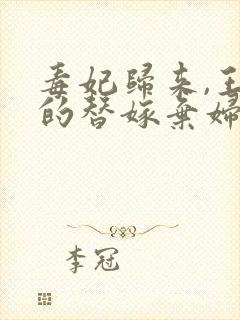 毒妃歸來,王
的替嫁棄婦
李冠